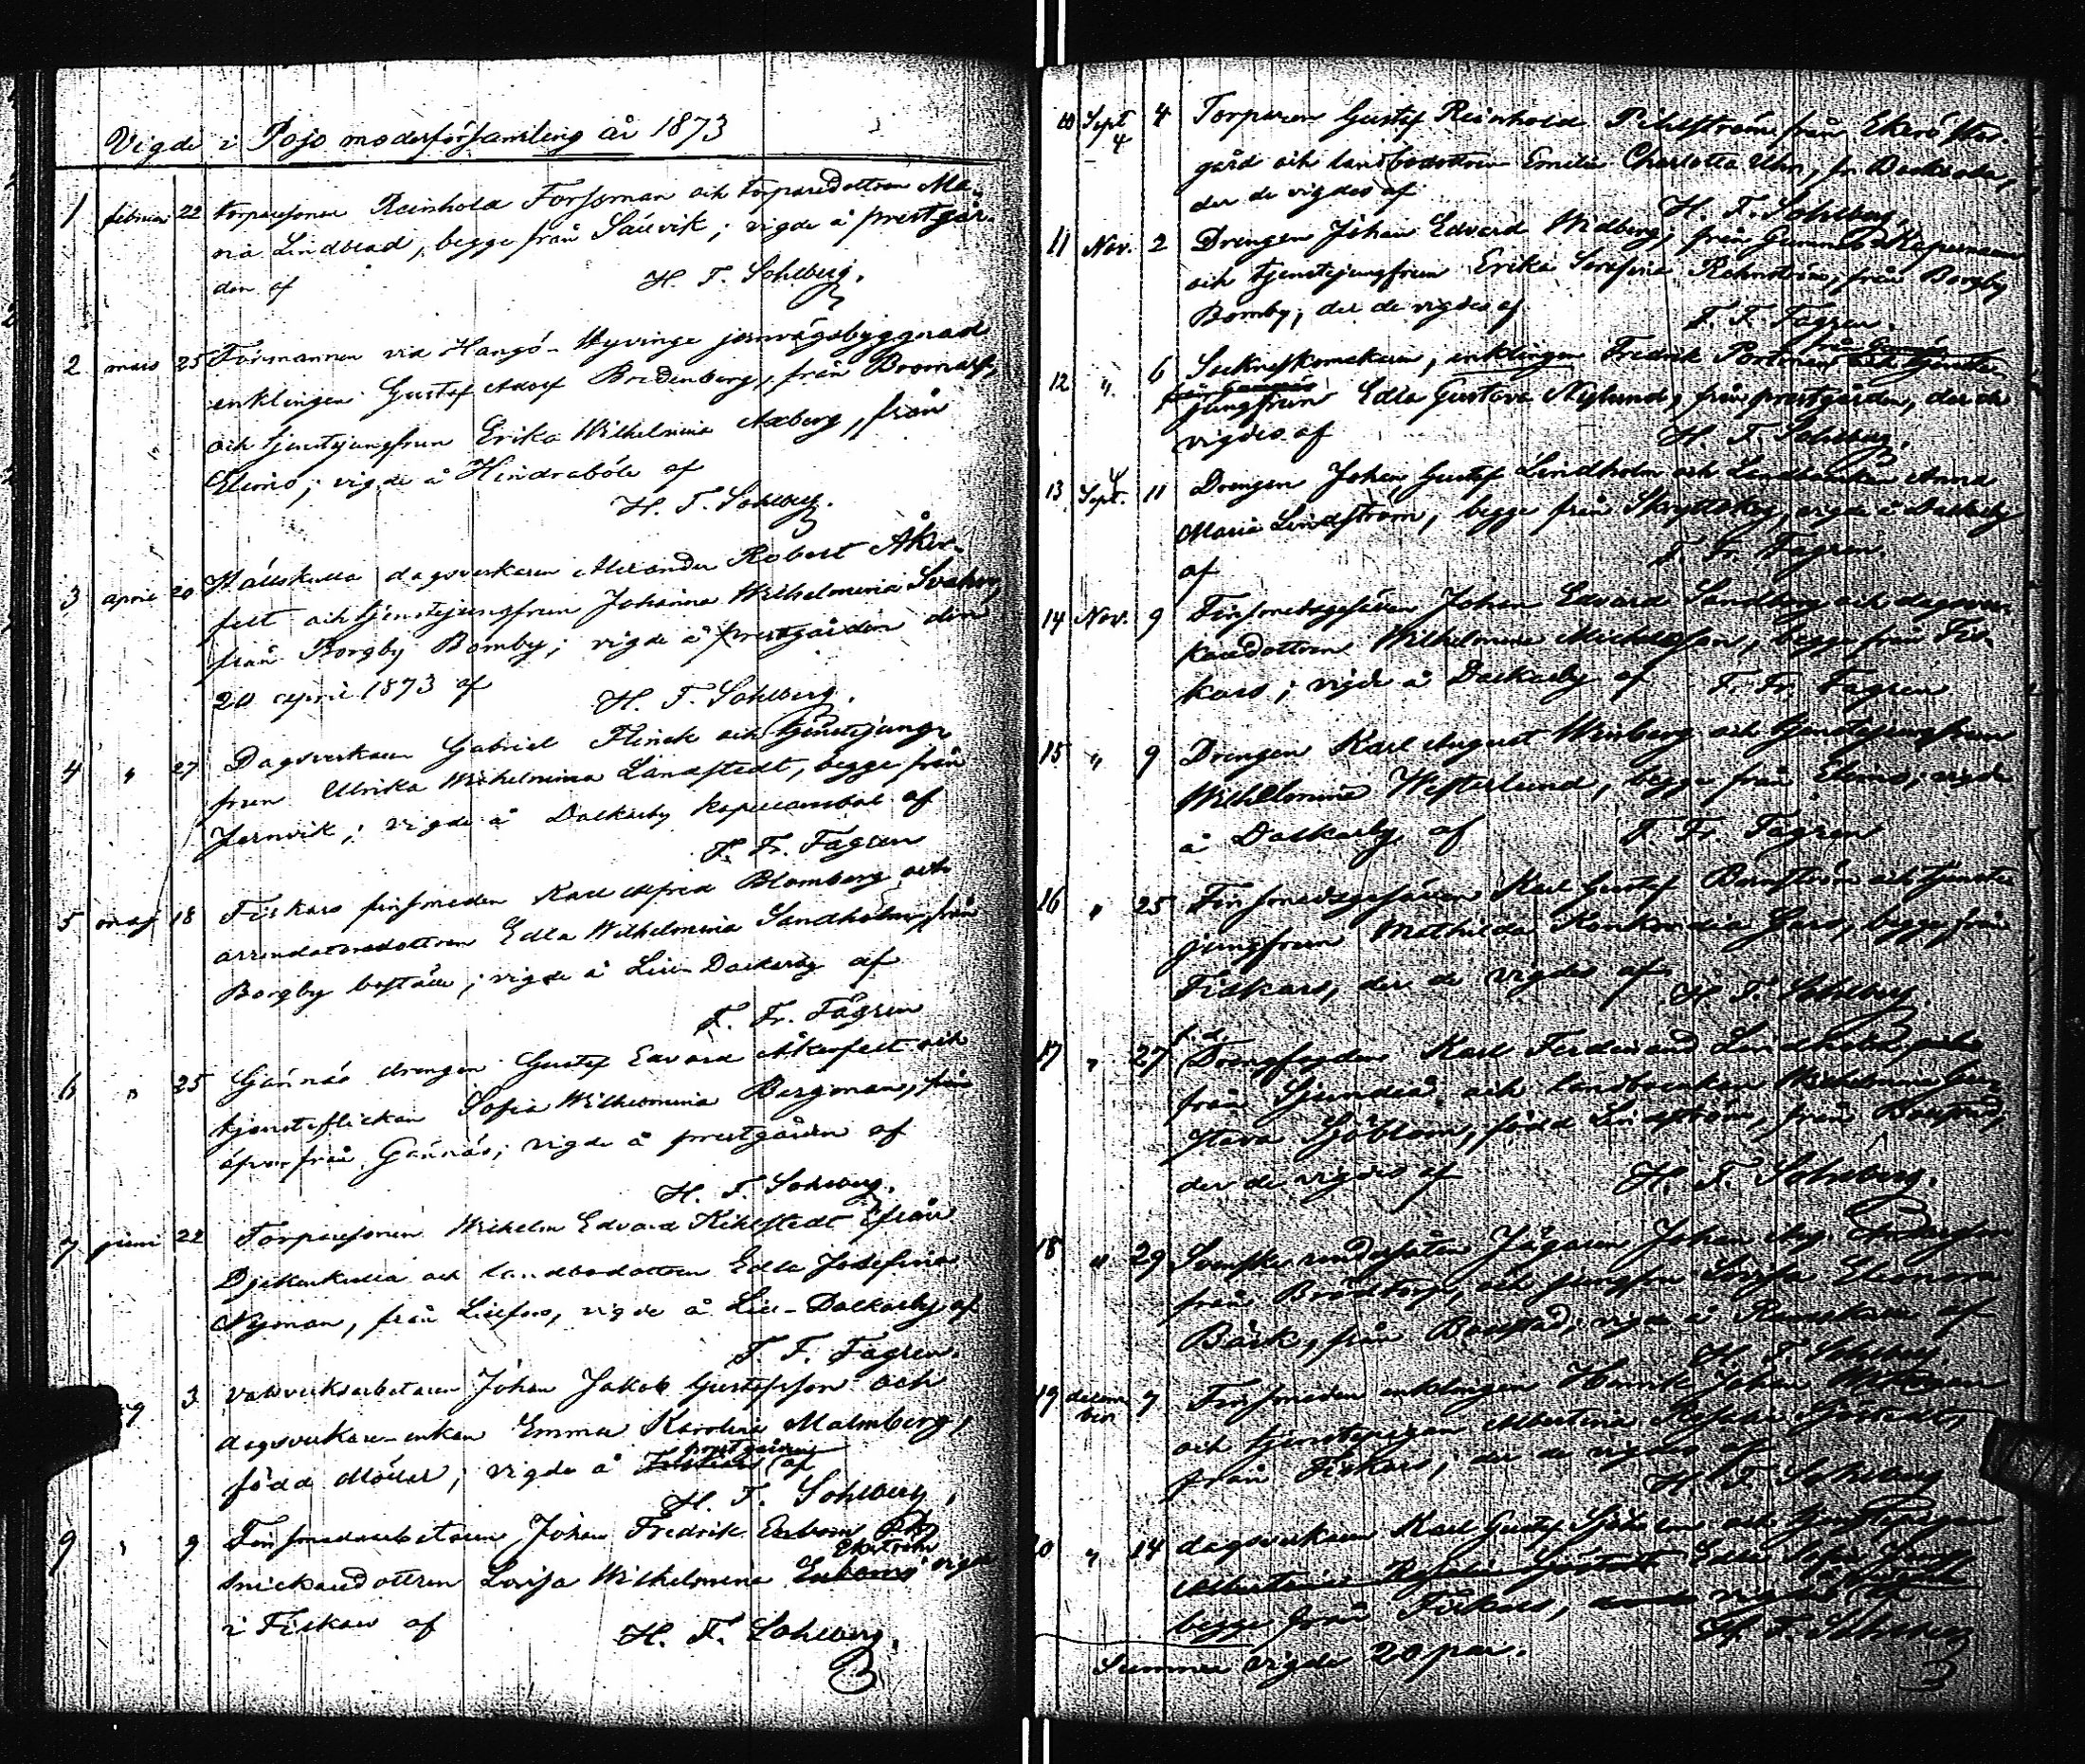 Vigde i Pojo moderförsamling år 1873
1 februari 22 torparesonen Reinhold Forssman och torparedottren Ma-
ria Lindblad, begge från Sållvik; vigde å prestgår-
den af H. T. Sohlberg.
2 mars 25 Förmannen vid Hangö-Hyvinge jernvägsbyggnad
enklingen Gustaf Adolf Bredenberg, från Bromarf,
och tjenstejungfrun Erika Wilhelmina Axberg, från
Elimo; vigde å Hindraböle af
H. T. Sohlberg.
3 april 20 dagsverkaren Alexander Robert Åker-
felt och tjenstejungfrun Johanna Wilhelmina Svahn,
från Borgby Bomby; vigde å prestgården den
20 april 1873 af
H. T. Sohlberg.
4 " 27 Dagsverkaren Gabriel Flinck och tjenstejung-
frun Ulrika Wilhelmina Landstedt, begge från
Jernvik; vigde å Dalkarby kapellansbol af
F. Fr. Fagren
5 maj 18 Fiskars finsmeden Karl Alfred Blomberg och
arrendatorsdottren Edla Wilhelmina Sandholm, från
Borgby boställe; vigde å Lill-Dalkarby af
F. Fr. Fagren
6 " 25 Gännäs drengen Gustaf Edvard Åkerfelt och
tjensteflickan Sofia Wilhelmina Bergman, från
äfven från Gännäs; vigde å prestgården af
H. T. Sohlberg.
7 juni 22 Torparesonen Wilhelm Edvard Kihlstedt ifrån
Djekenkulla och landbodottren Edla Josefina
Nyman, från Lillfors, vigde å Lill-Dalkarby af
F. F. Fagren.
3 valsverksarbetaren Johan Jakob Gustafsson och
dagsverkare-enkan Emma Karolina Malmberg,
född Möller; vigde å prestgården af
H. T. Sohlberg,
9 " 9 Finsmedsarbetaren Johan Fredrik och
snickaredottren Lovisa Wilhelmina Ekström vigde
i Fiskars af H. T. Sohlberg.
10 Sept 4 4 Torparen Gustaf Reinhold Pihlström från Ekerö
gård och landbodottren Emilia Charlotta Uhr, fr.
der de vigdes af
H. T. Sohlberg.
11 Nov. 2 Drengen Johan Edvard Widberg, från
och tjenstejungfrun Erika Serafina Rehnström, från Borgby
Bomby, der de vigdes af
F. F. Fagren.
12 " 6 Sockneskomakaren, enklingen Fredrik Portman
jungfrun Edla Gustava Nylund, från prestgården, der de
vigdes af H. T. Sohlberg.
13 Sept. 11 Drengen Johan Gustaf Lindholm och Anna
Maria Lindström, begge från Skryttskog, vigde å Dalkarby
af F. Fr. Fagren
14 Nov. 9 Finsmedsgesällen Johan Edvard Sandberg och dagsver-
karedottren Wilhelmina Michelsson, begge från Fis-
kars; vigde å Dalkarby af F. Fr. Fagren
15 " 9 Drengen Karl August Winberg och tjenstejungfrun
Wilhelmina Westerlund, begge från Elimo; vigde
å Dalkarby af F. Fr. Fagren
16 " 25 Finsmedsgesällen Karl Gustaf och tjenste
jungfrun Mathilda Konkordia begge från
Fiskars, der de vigdes af H. T. Sohlberg.
17 " 27 f. d. Drengfogden Karl Ferdinand
från Sjundeå och landboenkan Wilhelmina Gus-
tava Sjöblom, född Lindström, från Baxstad,
der de vigdes af H. T. Sohlberg.
18 " 29 Svenske undersåten Jägaren Johan Aug.
från Brödtorp, och jungfru Lovisa Eleonora
Bäck, från Baxstad; vigde å af
H. T. Sohlberg
19 decem ber 7 Finsmeden enklingen Henrik Johan
och tjenstepigan Albertina Rosalie Sjöstedt,
från Fiskars; der de vigdes af
H. T. Sohlberg
20 " 14 dagsverkaren Karl Gustaf och tjenstepigan
Albertina Rosalie Sjöstedt Edla Sofia
begge från Fiskars, vigdes af
H. T. Sohlberg
Summa vigde 20 par.